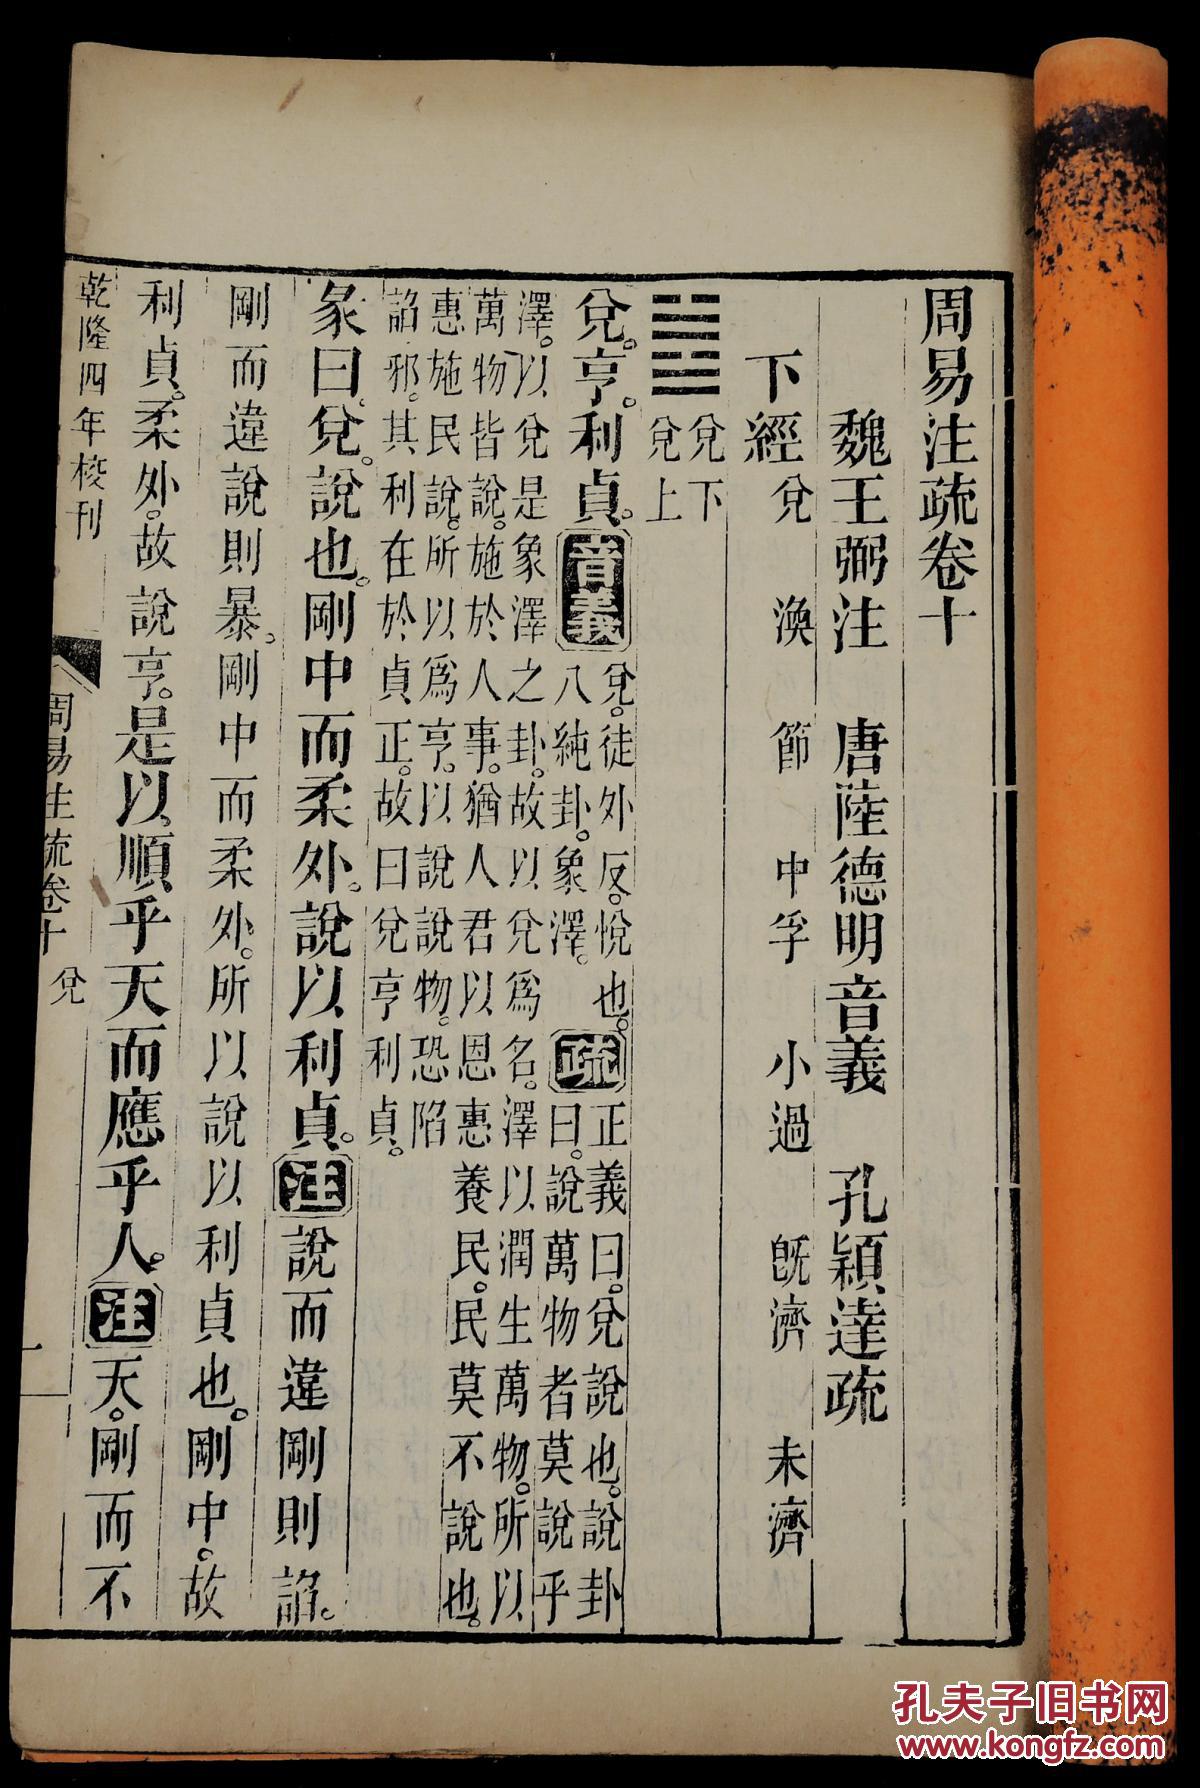 周易注疏卷十
魏王弼注 唐陸德明音義 孔穎達疏
下經 兌 渙 節 中孚 小過 旣濟 未濟
兌下
兌上
兌。亨。利貞。音義
兌。徒外反。悅也。
八純卦。象澤。
疏
正義曰。兌說也。說卦
曰。說萬物者莫說乎
澤。以兌是象澤之卦。故以兌爲名。澤以潤生萬物。所以
萬物皆說。施於人事。猶人君以恩惠養民。民莫不說也。
惠施民說。所以爲亨。以說說物。恐陷
諂邪。其利在於貞正。故曰兌亨利貞。
彖曰。兌。說也。剛中而柔外。說以利貞。注說而違剛則諂。
剛而違說則暴。剛中而柔外。所以說以利貞也。剛中。故
利貞。柔外。故說亨。是以順乎天而應乎人。注天。剛而不
乾隆四年校刊
周易注疏卷十 兌 一
孔夫子旧书网
www.kongfz.com